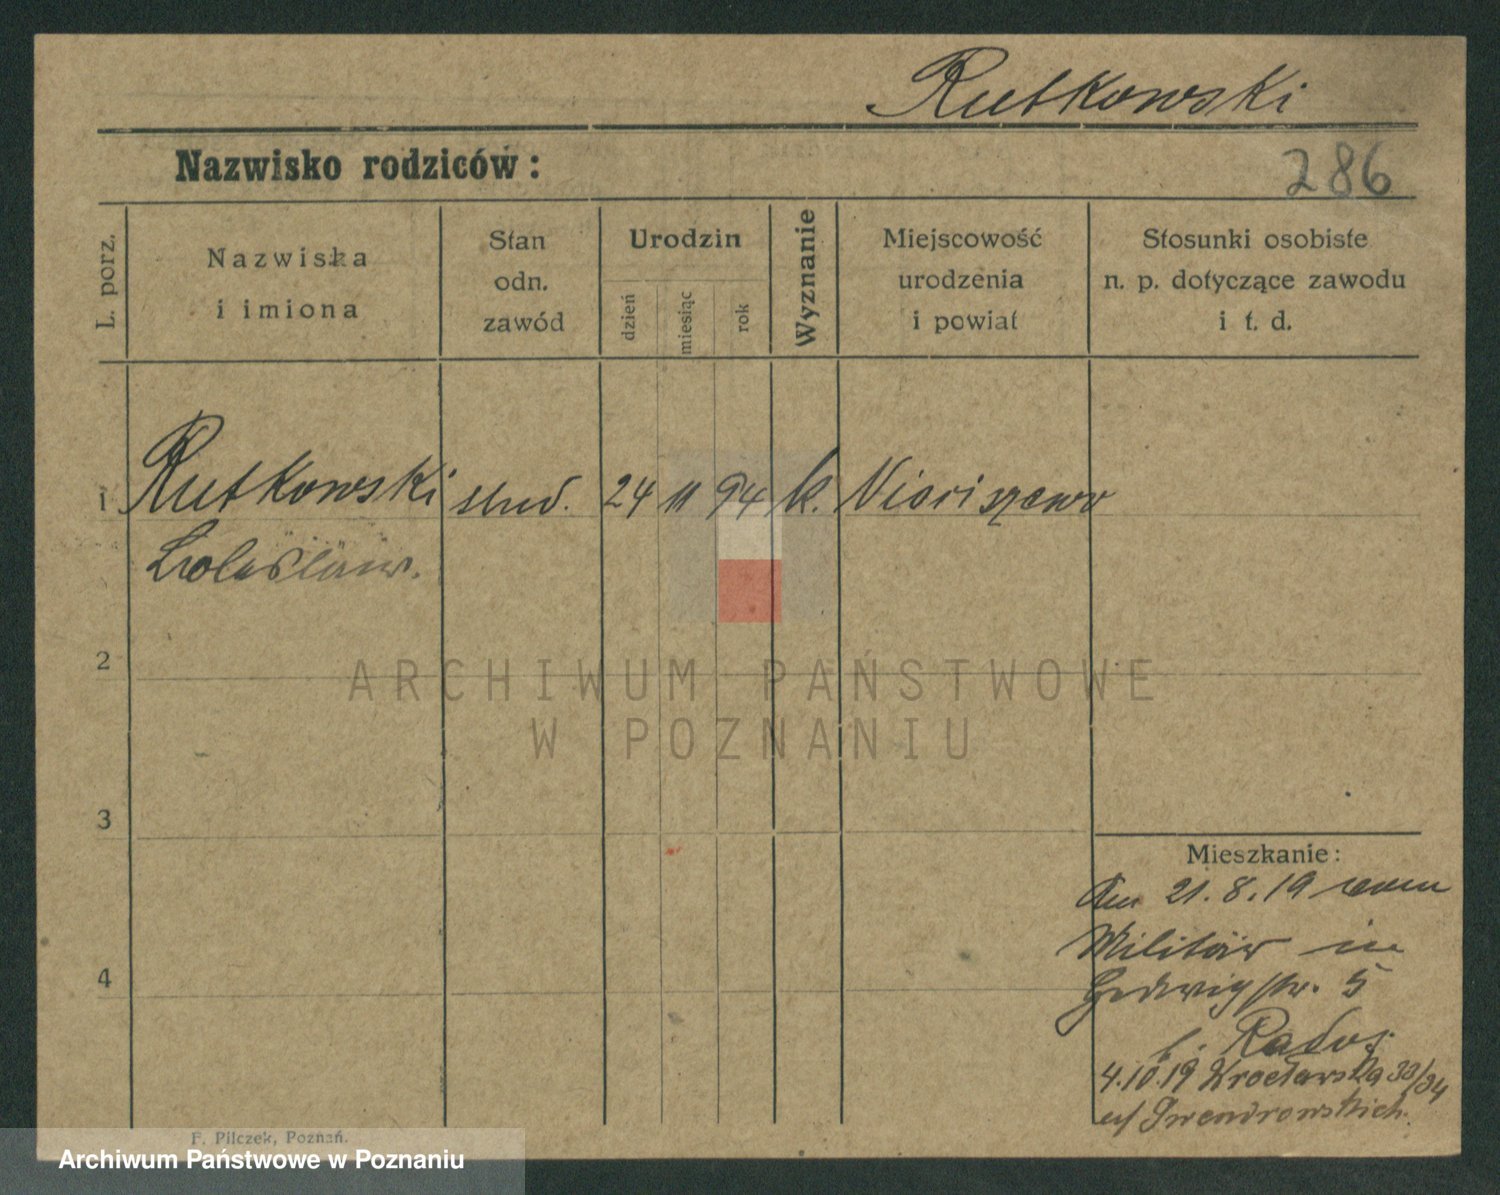 Rutkowski
Nazwisko rodziców:
286
L. porz.
Nazwiska
i imiona
Stan
odn.
zawód
Urodzin
dzień
miesiąc
rok
Wyznanie
Miejscowość
urodzenia
i powiat
Stosunki osobiste
n. p. dotyczące zawodu
i t. d.
1 Rutkowski stud. 24 11 94 k.
2
3
4
ARCHIWUM PAŃSTWOWE
W POZNANIU
Mieszkanie:
Am 21.8.19 vom
Militär in
Hedwigstr. 5
b.
4.10.19 Wrocławska 33/34
F. Pilczek, Poznań.
Archiwum Państwowe w Poznaniu